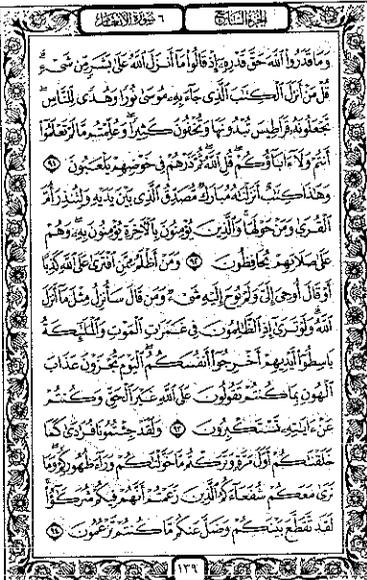 الجزء السابع ٦ سورة الأنعام
وَمَا قَدَرُوا۟ ٱللَّهَ حَقَّ قَدْرِهِۦٓ إِذْ قَالُوا۟ مَآ أَنزَلَ ٱللَّهُ عَلَىٰ بَشَرٍ مِّن شَىْءٍ ۗ
قُلْ مَنْ أَنزَلَ ٱلْكِتَٰبَ ٱلَّذِى جَآءَ بِهِۦ مُوسَىٰ نُورًا وَهُدًى لِّلنَّاسِ ۖ
تَجْعَلُونَهُۥ قَرَاطِيسَ تُبْدُونَهَا وَتُخْفُونَ كَثِيرًا ۖ وَعُلِّمْتُم مَّا لَمْ تَعْلَمُوٓا۟
أَنتُمْ وَلَآ ءَابَآؤُكُمْ ۖ قُلِ ٱللَّهُ ۖ ثُمَّ ذَرْهُمْ فِى خَوْضِهِمْ يَلْعَبُونَ ٩١
وَهَٰذَا كِتَٰبٌ أَنزَلْنَٰهُ مُبَارَكٌ مُّصَدِّقُ ٱلَّذِى بَيْنَ يَدَيْهِ وَلِتُنذِرَ أُمَّ
ٱلْقُرَىٰ وَمَنْ حَوْلَهَا ۚ وَٱلَّذِينَ يُؤْمِنُونَ بِٱلْءَاخِرَةِ يُؤْمِنُونَ بِهِۦ ۖ وَهُمْ
عَلَىٰ صَلَاتِهِمْ يُحَافِظُونَ ٩٢ وَمَنْ أَظْلَمُ مِمَّنِ ٱفْتَرَىٰ عَلَى ٱللَّهِ كَذِبًا
أَوْ قَالَ أُوحِىَ إِلَىَّ وَلَمْ يُوحَ إِلَيْهِ شَىْءٌ وَمَن قَالَ سَأُنزِلُ مِثْلَ مَآ أَنزَلَ
ٱللَّهُ ۗ وَلَوْ تَرَىٰٓ إِذِ ٱلظَّٰلِمُونَ فِى غَمَرَٰتِ ٱلْمَوْتِ وَٱلْمَلَٰٓئِكَةُ
بَاسِطُوٓا۟ أَيْدِيهِمْ أَخْرِجُوٓا۟ أَنفُسَكُمُ ۖ ٱلْيَوْمَ تُجْزَوْنَ عَذَابَ
ٱلْهُونِ بِمَا كُنتُمْ تَقُولُونَ عَلَى ٱللَّهِ غَيْرَ ٱلْحَقِّ وَكُنتُمْ
عَنْ ءَايَٰتِهِۦ تَسْتَكْبِرُونَ ٩٣ وَلَقَدْ جِئْتُمُونَا فُرَٰدَىٰ كَمَا
خَلَقْنَٰكُمْ أَوَّلَ مَرَّةٍ وَتَرَكْتُم مَّا خَوَّلْنَٰكُمْ وَرَآءَ ظُهُورِكُمْ ۖ وَمَا
نَرَىٰ مَعَكُمْ شُفَعَآءَكُمُ ٱلَّذِينَ زَعَمْتُمْ أَنَّهُمْ فِيكُمْ شُرَكَٰٓؤُا۟ ۚ
لَقَد تَّقَطَّعَ بَيْنَكُمْ وَضَلَّ عَنكُم مَّا كُنتُمْ تَزْعُمُونَ ٩٤
١٣٩